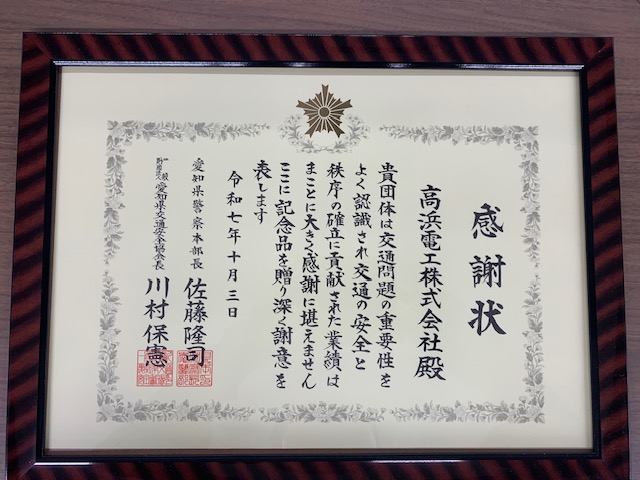 感謝状
高浜電工株式会社殿
貴団体は交通問題の重要性を
よく認識され交通の安全と
秩序の確立に貢献された業績は
まことに大きく感謝に堪えません
ここに記念品を贈り深く謝意を
表します
令和七年十月三日
愛知県警察本部長 佐藤隆司
一般財団法人愛知県交通安全協会長 川村保憲